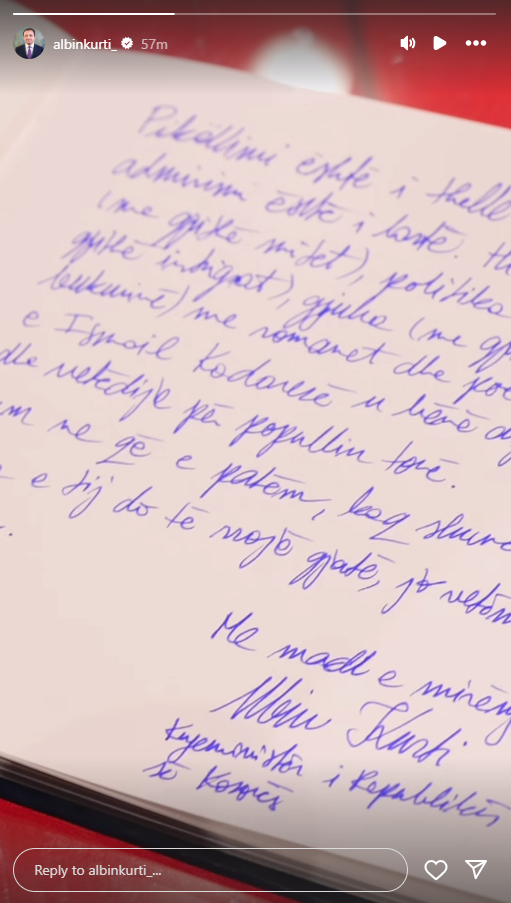 albinkurti_ 57m
Pikëllimi është i thellë
admirim është i lartë.
(me gjithë mitet), politika
gjithë intrigat), gjuha (me
bukurinë) me romanet dhe
e Ismail Kadaresë u bënë
dhe vetëdije për popullin tonë.
me që e patëm, kaq
e tij do të rrojë gjatë, jo vetëm
Me mall e
Albin Kurti
Kryeministër i Republikës
së Kosovës
Reply to albinkurti_...